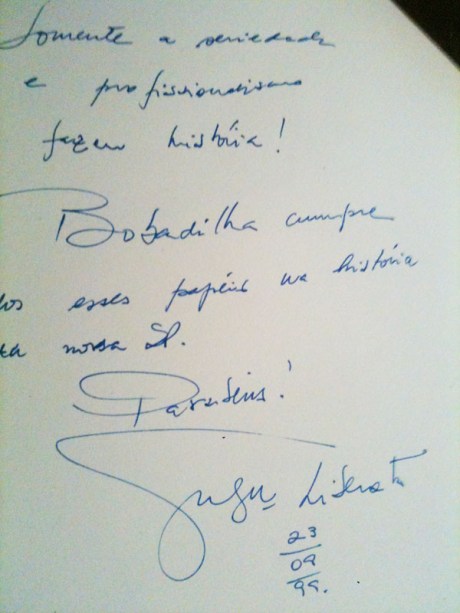 Somente a seriedade
e profissionalismo
fazem história!
Bobadilha cumpre
dos esses papéis na história
ta nossa SP.
Parabéns!
Gugu Liberato
23
09
99.